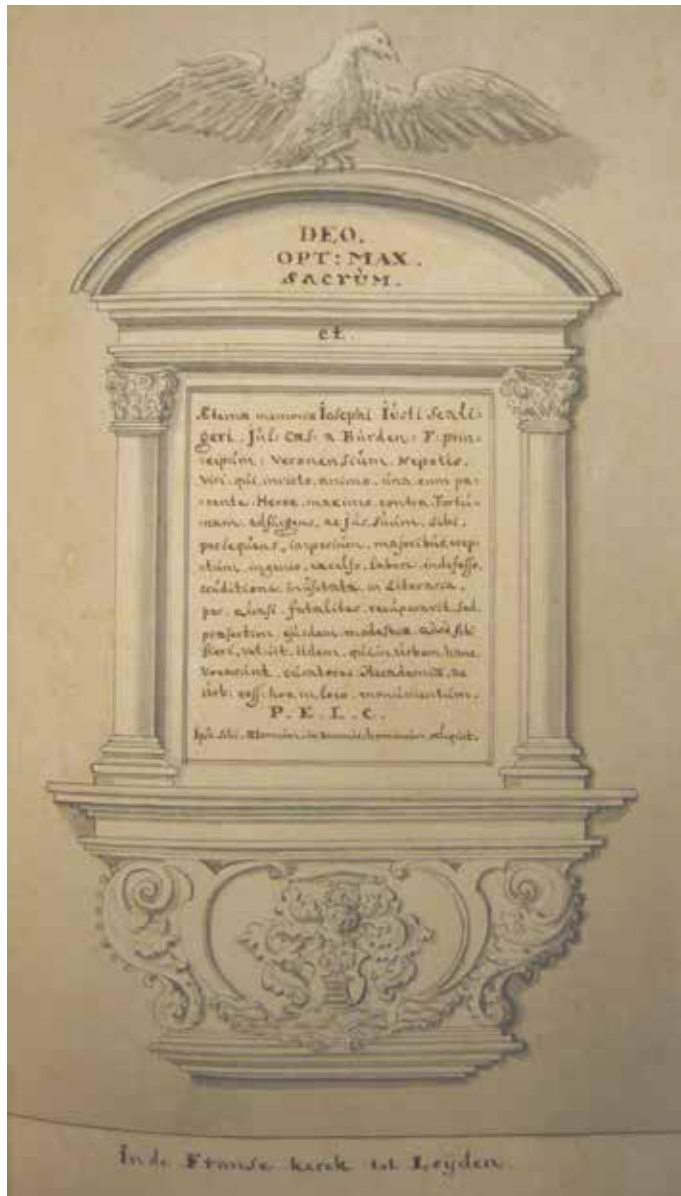 DEO.
OPT: MAX.
SACRÙM.
et.
Æterna memoriæ Iosephi Iústi Scali:
geri. Júl: Cæs: a Búrden: F: prin:
cipúm: Veronensiúm. Nepotis.
Viri. qúi. invicto. animo. úna. cum pa:
rente. Heroe. maximo. contra. Fortú:
nam. adsúrgens. ac jús. súúm. sibi.
perseqúens. imperiúm. majoribús. erep:
túm. ingenio. excelso. labore. indefesso.
erúditione. inúsitata. in Literaria.
per. qúasi. fataliter. recúperavit. sed.
præsertim. ejúsdem. modestiæ. qúod sibi
fieri. vetúit. iidem. qúi in úrbem hanc
vocarúnt. cúratores. Academiæ. ac
úrb: coss: hoc in loco. monúmentúm.
P. E. L. C.
Ipse sibi. æternúm. in animis. hominúm. reliqúit.
In de Franse kerck tot Leyden.